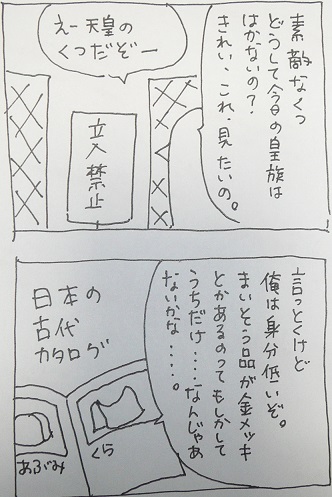 素敵なくつ
どうして今日の皇族は
はかないの?
きれい、これ、見たいの。
えー天皇の
くつだぞー
立入禁止
言っとくけど
俺は身分低いぞ。
まいそう品が金メッキ
とかあるのってもしかして
うちだけ‥‥なんじゃあ
ないかな‥‥。
日本の
古代
カタログ
くら
あぶみ